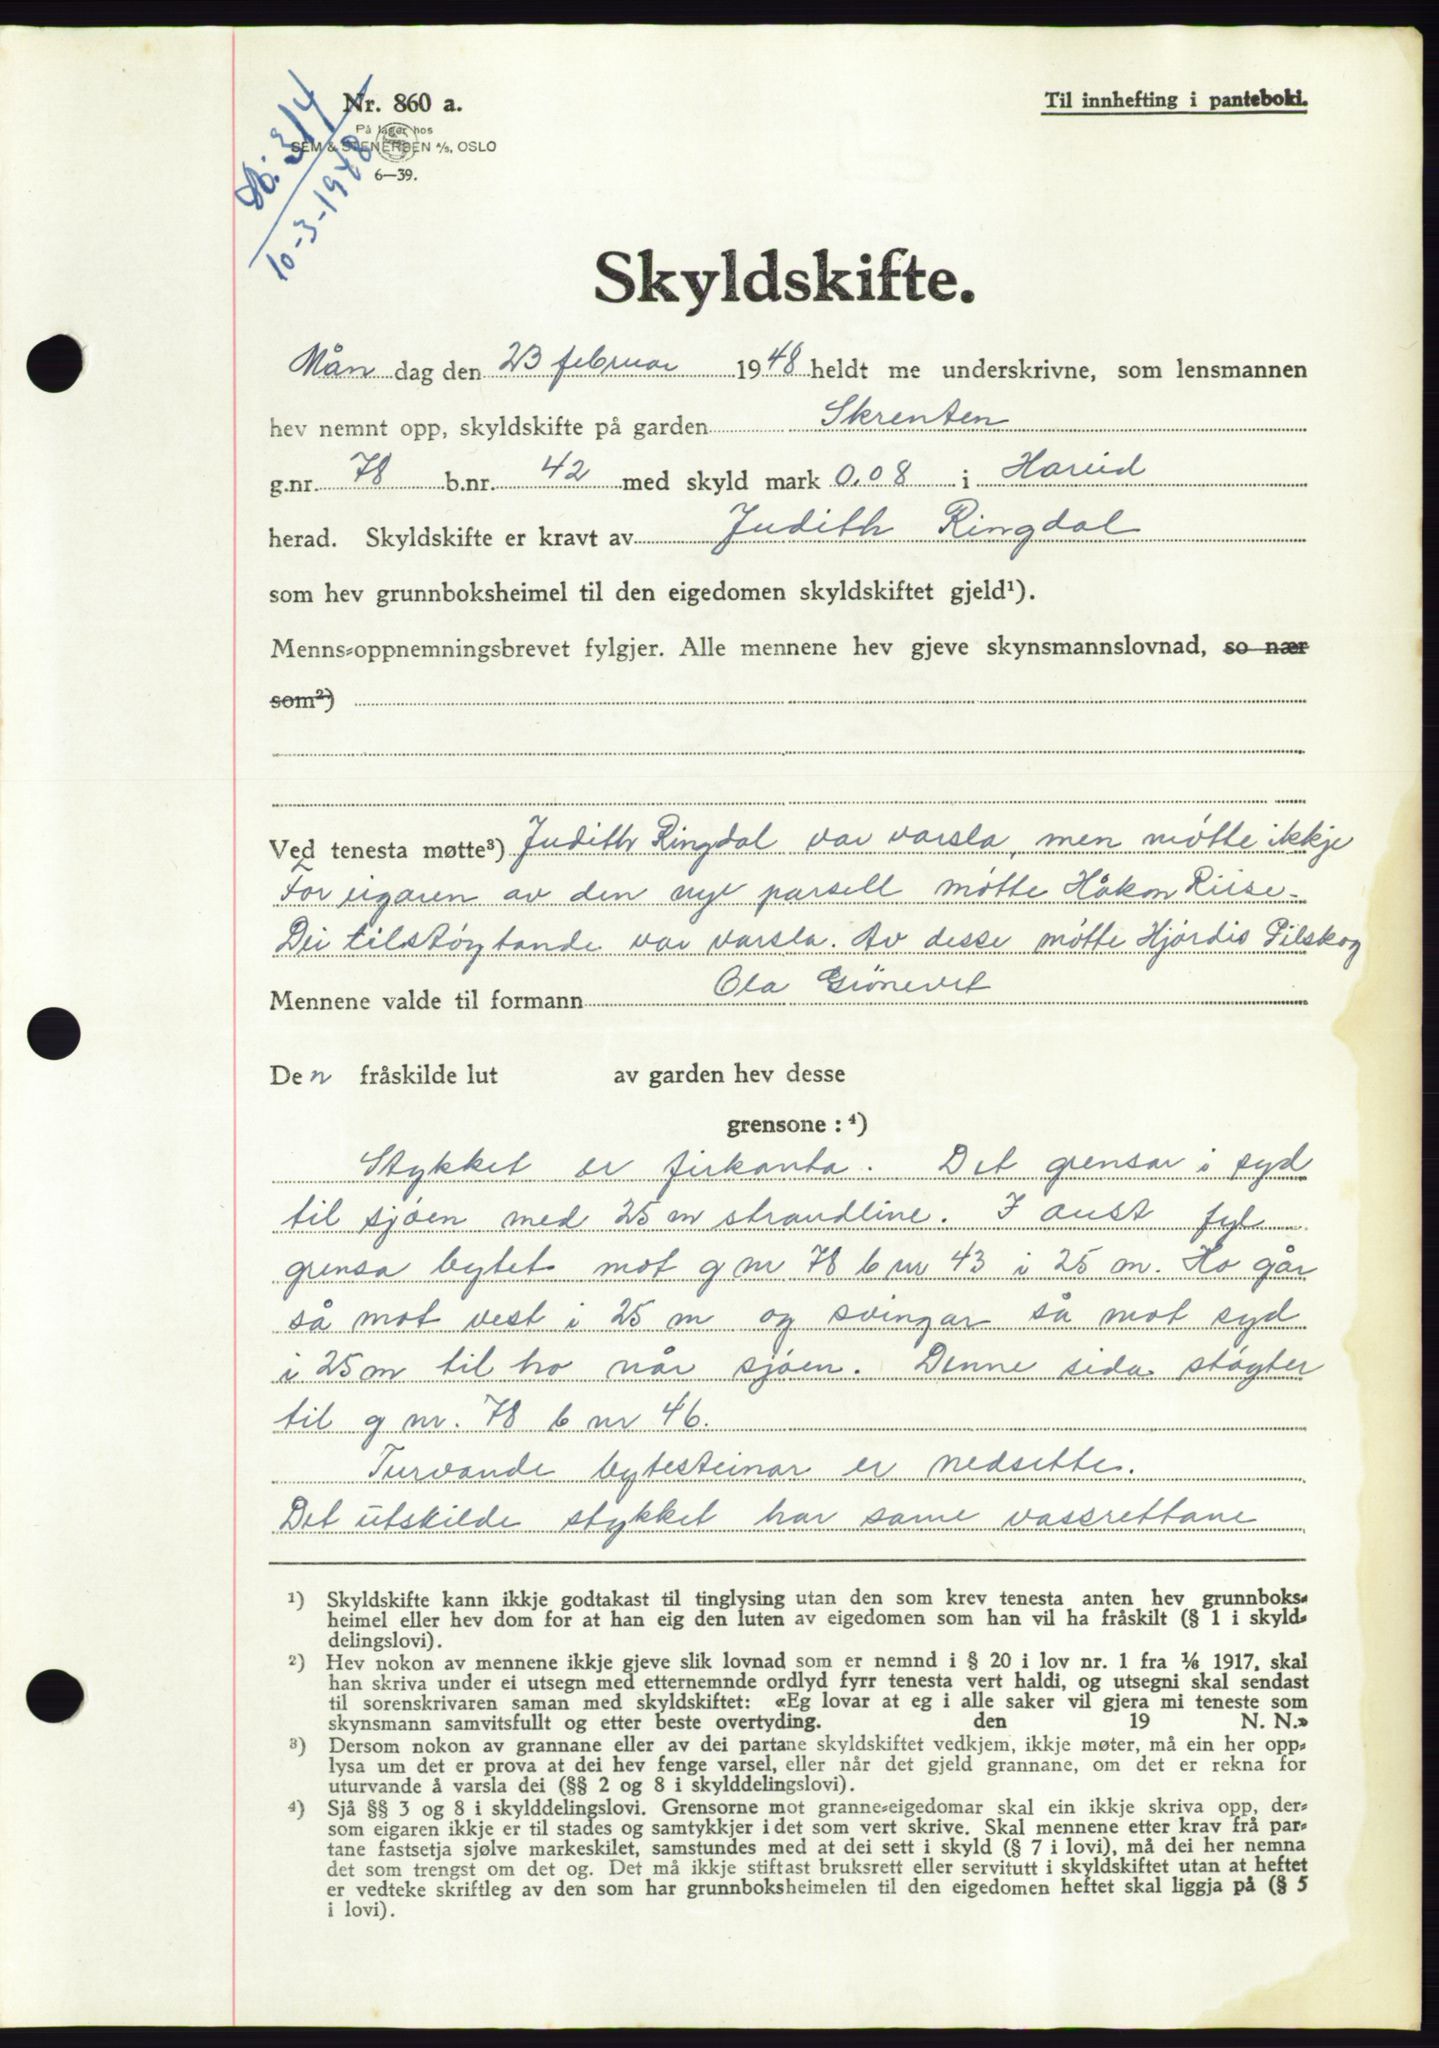 Nr. 860 a.
På lager hos
SEM & STENERSEN A/S, OSLO
6—39.
314
10-3-1948
Til innhefting i panteboki.
Skyldskifte.
Mån dag den 23 februar 1948 heldt me underskrivne, som lensmannen
hev nemnt opp, skyldskifte på garden Skrenten
g.nr. 78 b.nr. 42 med skyld mark 0,08 i Hareid
herad. Skyldskifte er kravt av Judith Ringdal
som hev grunnboksheimel til den eigedomen skyldskiftet gjeld¹).
Menns-oppnemningsbrevet fylgjer. Alle mennene hev gjeve skynsmannslovnad, so nær
som²)
Ved tenesta møtte³) Judith Ringdal var varsla, men møtte ikkje
For eigaren av den nye parsell møtte Håkon Riise.
Dei tilstøytande var varsla. Av desse møtte Hjørdis Pilskog
Mennene valde til formann Ola Grønevet
Den fråskilde lut av garden hev desse
grensone : ⁴)
Stykket er firkanta. Det grensar i syd
til sjøen med 25 m strandline. I aust fyl
grensa bytet mot g nr 78 b nr 43 i 25 m. Ho går
så mot vest i 25 m og svingar så mot syd
i 25 m til ho når sjøen. Denne sida støyter
til g nr. 78 b nr 46.
Turvande bytesteinar er nedsette.
Det utskilde stykket har same vassrettane
¹) Skyldskifte kann ikkje godtakast til tinglysing utan den som krev tenesta anten hev grunnboks-
heimel eller hev dom for at han eig den luten av eigedomen som han vil ha fråskilt (§ 1 i skyld-
delingslovi).
²) Hev nokon av mennene ikkje gjeve slik lovnad som er nemnd i § 20 i lov nr. 1 fra 1/6 1917, skal
han skriva under ei utsegn med etternemnde ordlyd fyrr tenesta vert haldi, og utsegni skal sendast
til sorenskrivaren saman med skyldskiftet: «Eg lovar at eg i alle saker vil gjera mi teneste som
skynsmann samvitsfullt og etter beste overtyding. den 19 N. N.»
³) Dersom nokon av grannane eller av dei partane skyldskiftet vedkjem, ikkje møter, må ein her opp-
lysa um det er prova at dei hev fenge varsel, eller når det gjeld grannane, om det er rekna for
uturvande å varsla dei (§§ 2 og 8 i skylddelingslovi).
⁴) Sjå §§ 3 og 8 i skylddelingslovi. Grensorne mot granne-eigedomar skal ein ikkje skriva opp, der-
som eigaren ikkje er til stades og samtykkjer i det som vert skrive. Skal mennene etter krav frå par-
tane fastsetja sjølve markeskilet, samstundes med at dei sett i skyld (§ 7 i lovi), må dei her nemna
det som trengst om det og. Det må ikkje stiftast bruksrett eller servitutt i skyldskiftet utan at heftet
er vedteke skriftleg av den som har grunnboksheimelen til den eigedomen heftet skal liggja på (§ 5
i lovi).